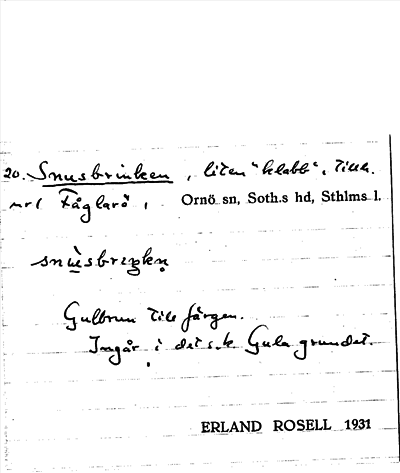 20. Snusbrinken, liten "klabb", tillh.
nr 1 Fåglarö, Ornö sn, Soth.s hd, Sthlms l.
snùsbriŋkn̥
Gulbrun till färgen.
Ingår i det s.k. Gula grundet.
ERLAND ROSELL 1931